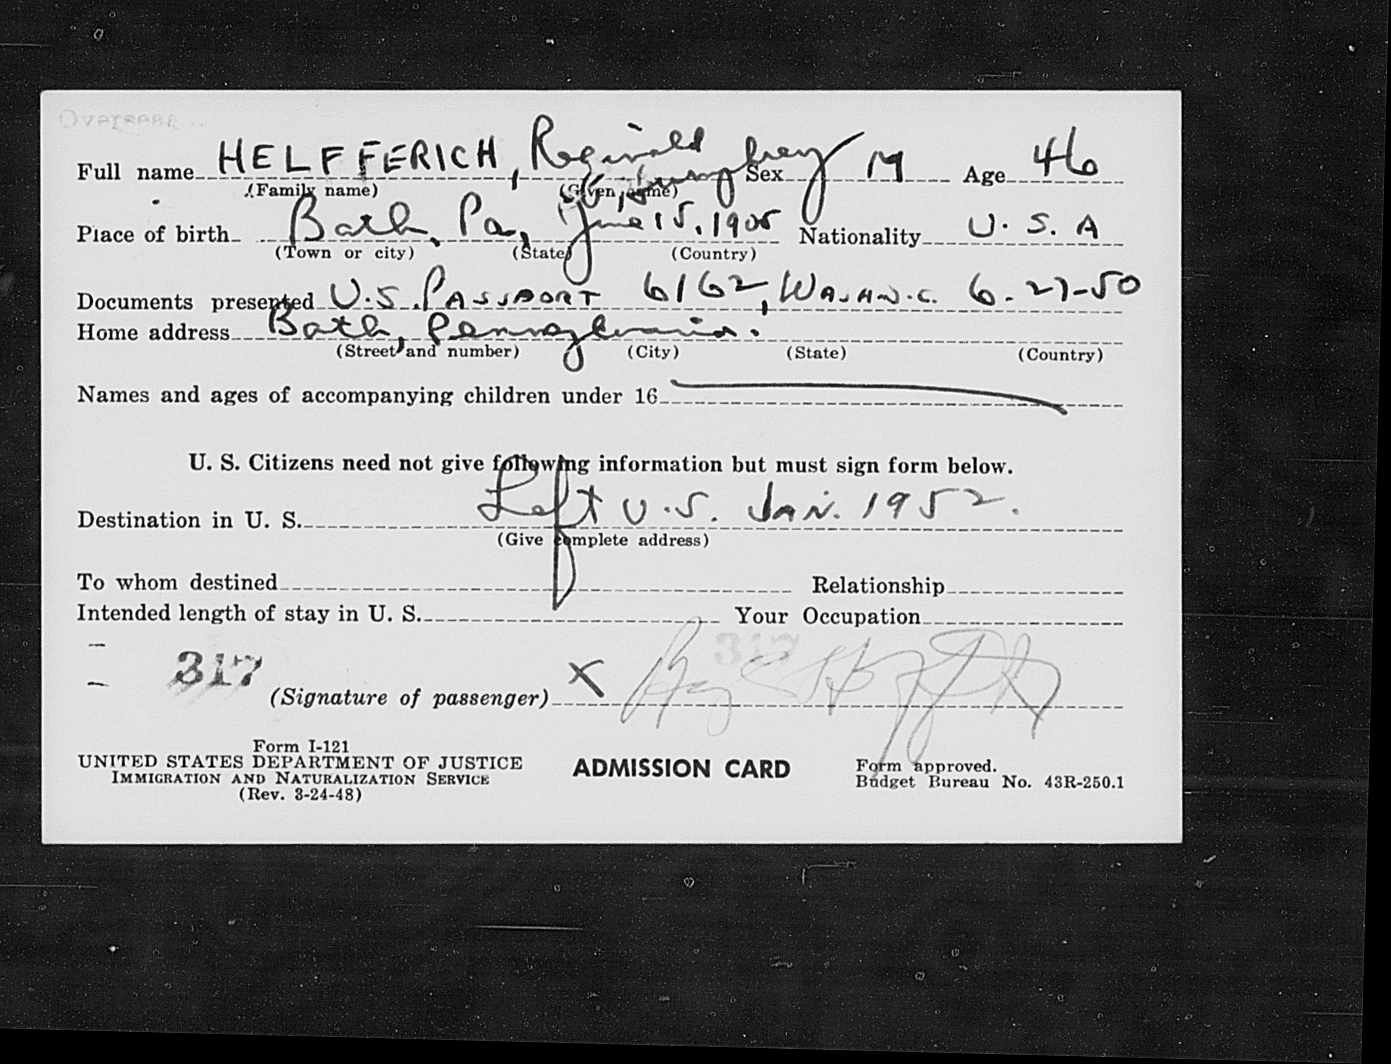 Overseas
Full name HELFFERICH, Reginald Humphrey Sex M Age 46
(Family name) (Given name)
Place of birth Bath, Pa, June 15, 1905 Nationality U.S.A
(Town or city) (State) (Country)
Documents presented U.S. PASSPORT 6162, WASH D.C. 6-27-50
Home address Bath, Pennsylvania.
(Street and number) (City) (State) (Country)
Names and ages of accompanying children under 16
U. S. Citizens need not give following information but must sign form below.
Destination in U. S. Left U.S. Jan. 1952.
(Give complete address)
To whom destined Relationship
Intended length of stay in U. S. Your Occupation
317 317
(Signature of passenger) X
Form I-121
UNITED STATES DEPARTMENT OF JUSTICE
IMMIGRATION AND NATURALIZATION SERVICE
(Rev. 3-24-48)
ADMISSION CARD
Form approved.
Budget Bureau No. 43R-250.1